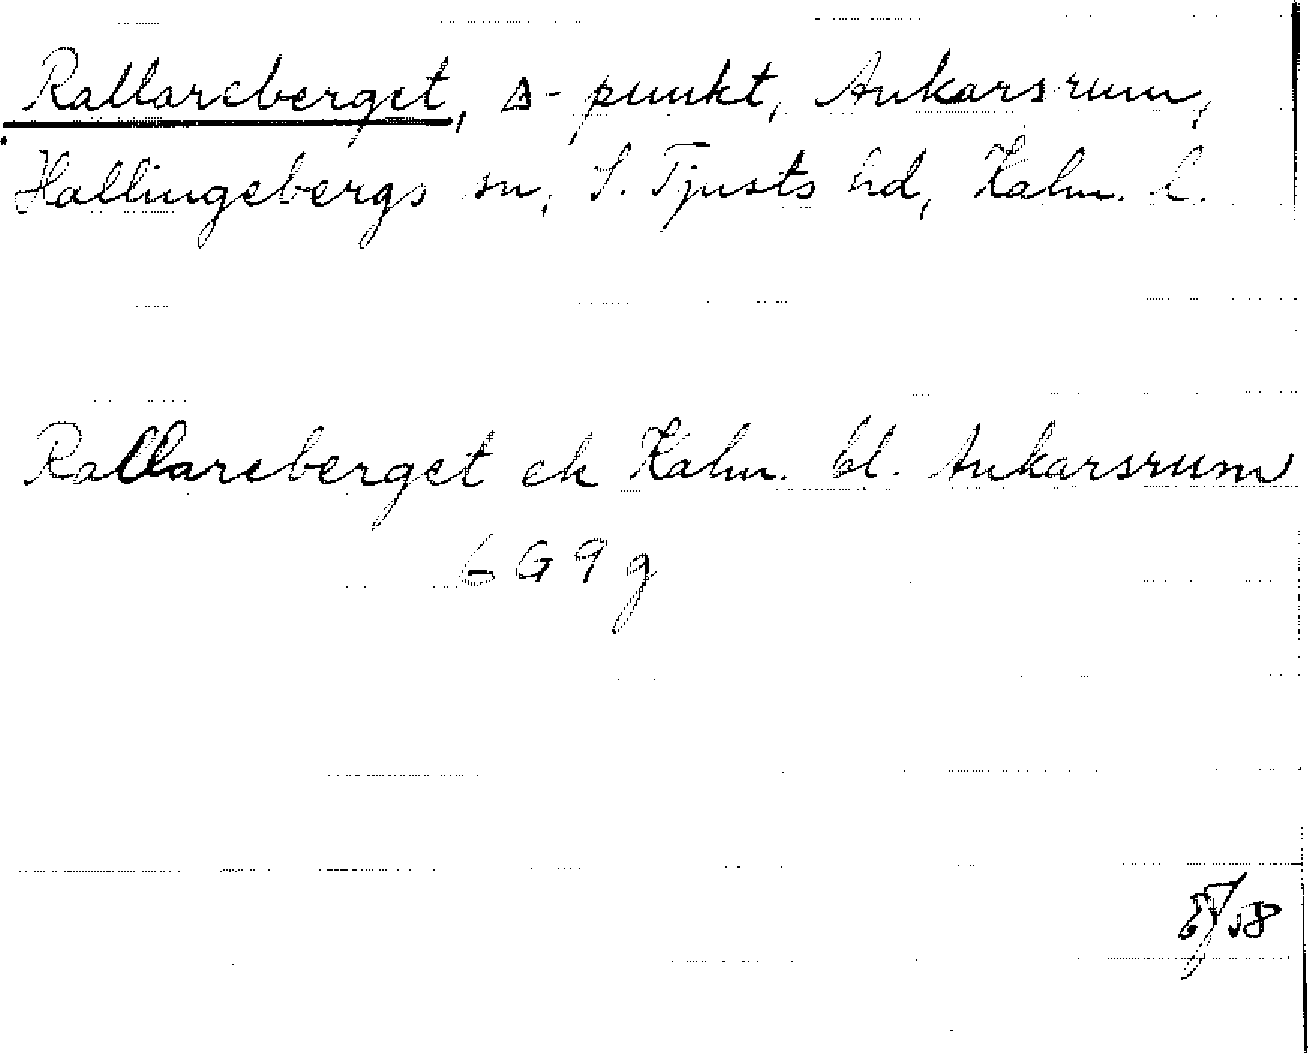 Rallareberget, Δ-punkt, Ankarsrum,
Hallingebergs sn, S. Tjusts hd, Kalm. l.
Rallareberget ek Kalm. bl. Ankarsrum
6G9g